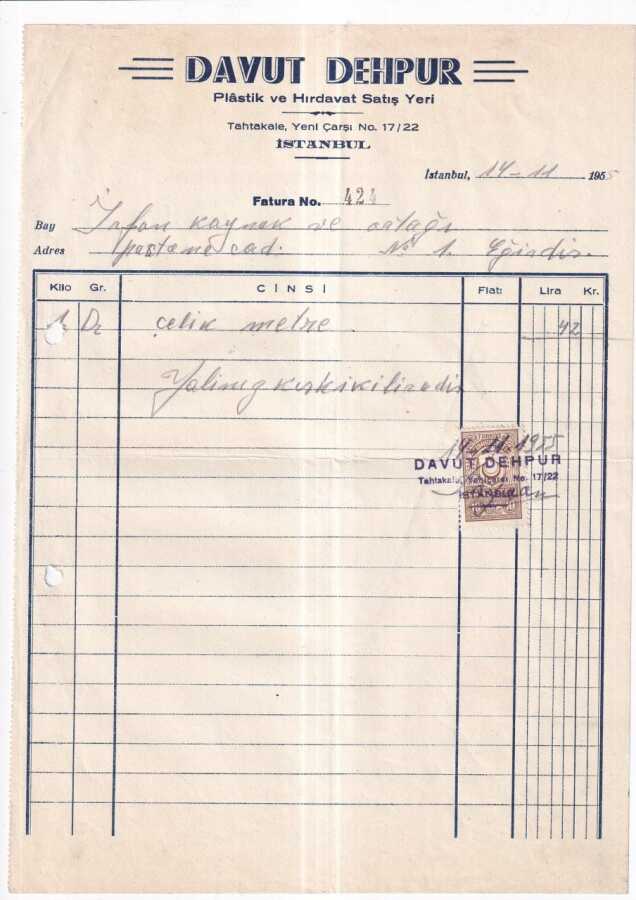 DAVUT DEHPUR
Plâstik ve Hırdavat Satış Yeri
Tahtakale, Yeni Çarşı No. 17/22
İSTANBUL
İstanbul, 14-11 1955
Fatura No. 424
Bay İrfan kaynak ve ortağı
Adres Postane cad. No 1. Eğirdir.
Kilo Gr. CİNSİ Fiatı Lira Kr.
1 Dz çelik metre 42
Yalınız kırk iki liradır
14-11-1955
DAVUT DEHPUR
Tahtakale, Yeniçarşı No. 17/22
İSTANBUL